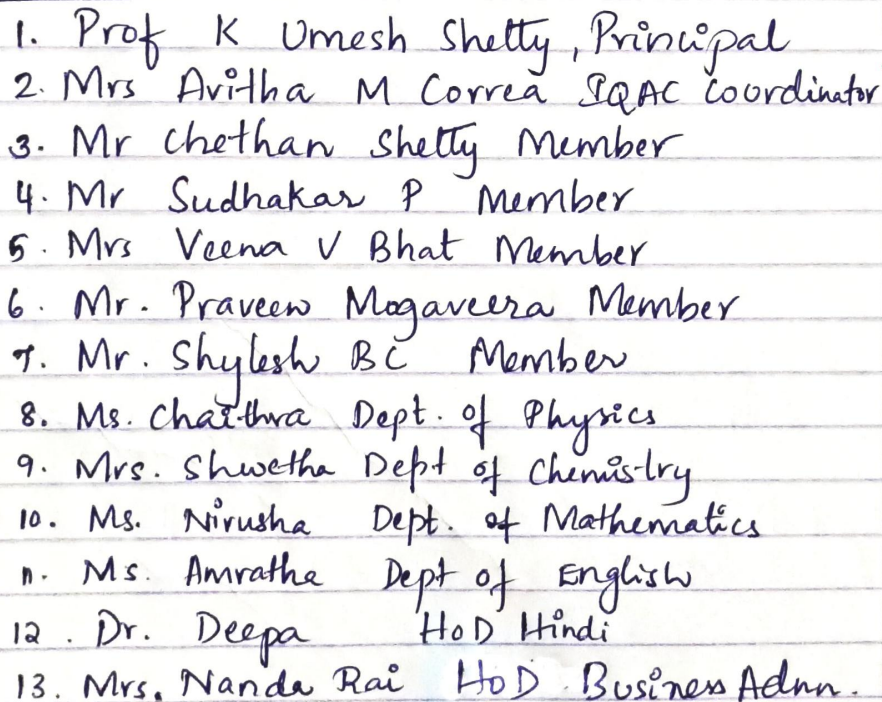 1. Prof K Umesh Shetty, Principal
2. Mrs Avitha M Correa IQAC Coordinator
3. Mr Chethan Shetty Member
4. Mr Sudhakar P Member
5. Mrs Veena V Bhat Member
6. Mr. Praveen Mogaveera Member
7. Mr. Shylesh BC Member
8. Ms. Chaithra Dept. of Physics
9. Mrs. Shwetha Dept of Chemistry
10. Ms. Nirusha Dept. of Mathematics
11. Ms. Amratha Dept of English
12. Dr. Deepa HoD Hindi
13. Mrs. Nanda Rai HoD Business Admn.